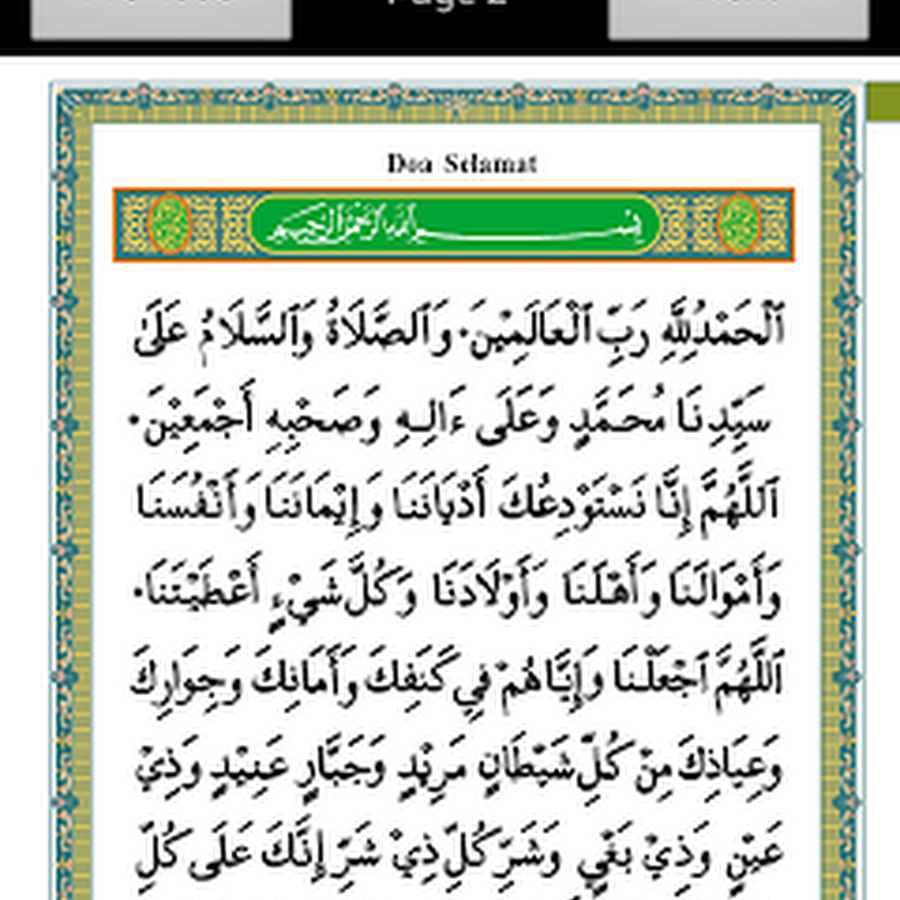 Page 2
Doa Selamat
بِسْمِ ٱللَّهِ ٱلرَّحْمَٰنِ ٱلرَّحِيمِ
ٱلْحَمْدُلِلَّهِ رَبِّ ٱلْعَالَمِيْنَ. وَٱلصَّلَاةُ وَٱلسَّلَامُ عَلَىٰ
سَيِّدِنَا مُحَمَّدٍ وَعَلَى ءَالِهِ وَصَحْبِهِ أَجْمَعِيْنَ.
ٱللَّهُمَّ إِنَّا نَسْتَوْدِعُكَ أَدْيَانَنَا وَإِيْمَانَنَا وَأَنْفُسَنَا
وَأَمْوَالَنَا وَأَهْلَنَا وَأَوْلَادَنَا وَكُلَّ شَيْءٍ أَعْطَيْتَنَا.
ٱللَّهُمَّ ٱجْعَلْنَا وَإِيَّاهُمْ فِي كَنَفِكَ وَأَمَانِكَ وَجِوَارِكَ
وَعِيَاذِكَ مِنْ كُلِّ شَيْطَانٍ مَرِيْدٍ وَجَبَّارٍ عَنِيْدٍ وَذِيْ
عَيْنٍ وَذِيْ بَغْيٍ وَشَرِّ كُلِّ ذِيْ شَرٍّ إِنَّكَ عَلَى كُلِّ